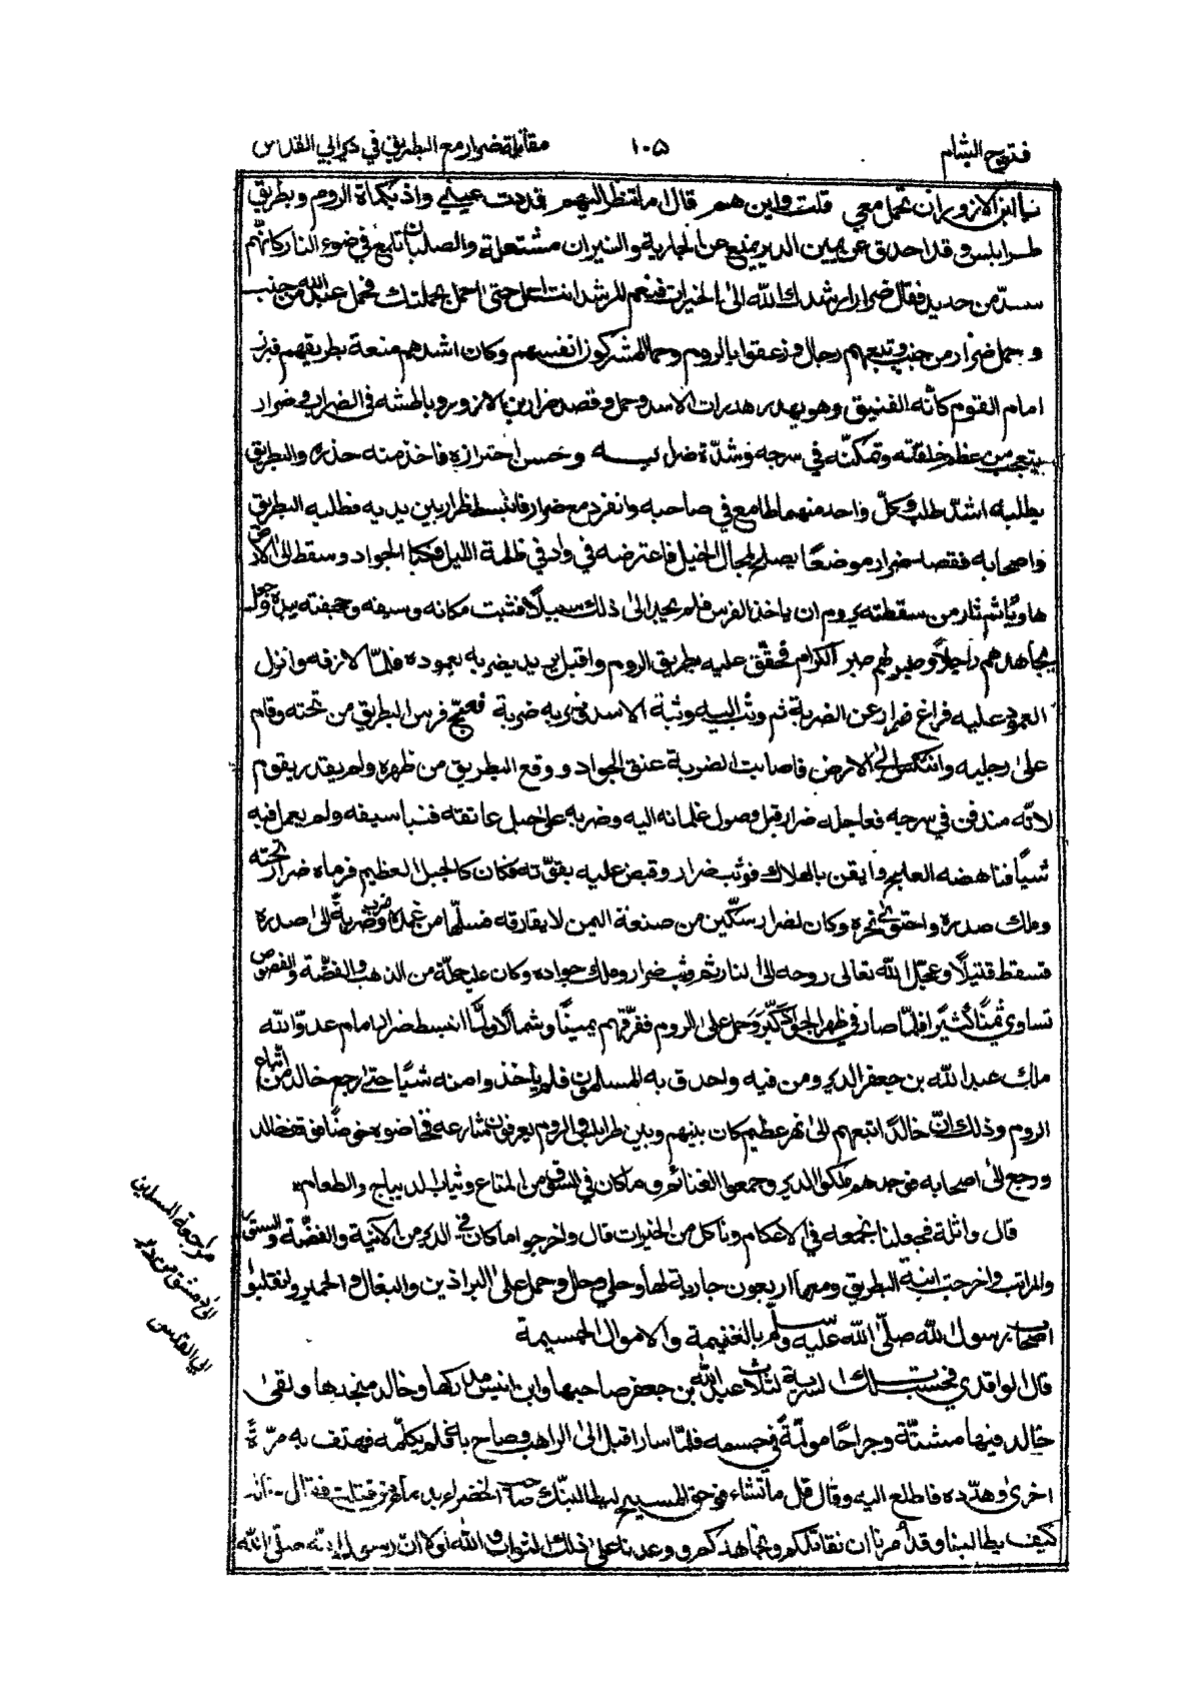 فتوح الشام
١٠٥
مقاتلة ضرار مع البطريق في دير ابي القدس
يا ابن الازور ان تحمل معي قلت واين هم قال اما تنظر اليهم فمددت عيني واذ بكماة الروم وبطريق
طرابلس وقد احدق عن يمين الدير يمنع عن الجارية والنيران مشتعلة والصلبان تلمع في ضوء النار كانهم
سدّ من حديد فقال ضرار ارشدك الله الى الخيرات فنعم المرشد انت احمل حتى احمل بحملتك فحمل عبد الله من جنب
وحمل ضرار من جنب وتبعهم رجال وزعقوا بالروم وحما المشركون انفسهم وكان اشدهم منعة بطريقهم فبرز
امام القوم كانّه الفنيق وهو يهدر هدرات الاسد وحمل وقصد ضرار بن الازور وباطشه في الضراب وضرار
يتعجب من عظم خلقته وتمكنّه في سرجه وشدّة ضرابه وحسن احترازه فاخذ منه حذره والبطريق
يطلبه اشدّ طلب وكلّ واحد منهما طامع في صاحبه وانفرد مع ضرار فانبسط ضرار بين يديه فطلبه البطريق
واصحابه فقصد ضرار موضعًا يصلح لمجال الخيل فاعترضه في واد في ظلمة الليل فكبا الجواد وسقط الى الارض
هاويًا ثم ثار من سقطته يروم ان ياخذ الفرس فلم يجد الى ذلك سبيلًا فثبت مكانه وسيفه وحجفته بيده وجعل
يجاهدهم راجلًا وصبر لهم صبر الكرام فحقّق عليه بطريق الروم واقبل يريد يضربه بعموده فلمّا لازقه وانزل
العمود عليه فراغ ضرار عن الضربة ثم وثب اليه وثبة الاسد فضربه ضربة فعجّ فرس البطريق من تحته وقام
على رجليه وانتكس الى الارض فاصابت الضربة عنق الجواد ووقع البطريق من ظهره ولم يقدر يقوم
لانّه مندفن في سرجه فعاجله ضرار قبل وصول غلمانه اليه وضربه على حبل عاتقه فنبا سيفه ولم يعمل فيه
شيأ فناهضه العلج وايقن بالهلاك فوثب ضرار وقبض عليه بقوّته فكان كالجبل العظيم فرماه ضرار تحته
وملك صدره واحتوى على نحره وكان لضرار سكّين من صنعة اليمن لا يفارقه فسلّها من غمده وضربه ضربة الى صدره
فسقط قتيلًا وعجّل الله تعالى روحه الى النار ثم وثب ضرار وملك جواده وكان عليه حلّة من الذهب والفضّة والفصوص
تساوي ثمنًا كثيرًا فلمّا صار في ظهر الجواد كَبَّرَ وَحمل على الروم ففرّقهم يمينًا وشمالًا ولمّا انبسط ضرار امام عدوّ الله
ملك عبد الله بن جعفر الدير ومن فيه واحدق به المسلمون فلم ياخذوا منه شيًا حتى رجع خالد من اتباع
الروم وذلك انّ خالدًا اتبعهم الى نهر عظيم كان بينهم وبين طرابلس والروم يعرفون مشارعه فخاضوه خوضًا فوقف خالد
ورجع الى اصحابه فوجدهم ملكوا الدير وجمعوا الغنائم وما كان في السوق من المتاع وثياب الديباج والطعام
قال واثلة فجعلنا نجمعه في الاعكام وناكل من الخيرات قال واخرجوا ما كان في الدير من الآنية والفضّة والستور
والمراتب واخرجت ابنة البطريق ومعها اربعون جارية لها وحلي وحلل وحمل على البراذين والبغال والحمير وانقلبوا
اصحاب رسول الله صلّى الله عليه وسلّم بالغنيمة والاموال الجسيمة
قال الواقدي فحسبت تلك السرية لثلاث عبد الله بن جعفر صاحبها وابن انيس مداركها وخالد منجدها ولقى
خالد فيها مشقّة وجراحًا مولمةً في جسمه فلمّا سار اقبل الى الراهب وصاح به فلم يكلّمه فهتف به مرّة
اخرى وهدّده فاطلع اليه وقال قل ما تشاء فوحق المسيح ليطالبنّك صاحب الخضراء بدماء من قتلت فقال خالد
كيف يطالبنا وقد أمرنا ان نقاتلكم ونجاهدكم ووعدنا على ذلك الثواب والله لولا انّ رسول الله صلّى الله
مراجعة المسلمين
الى دمشق من دير
ابي القدس